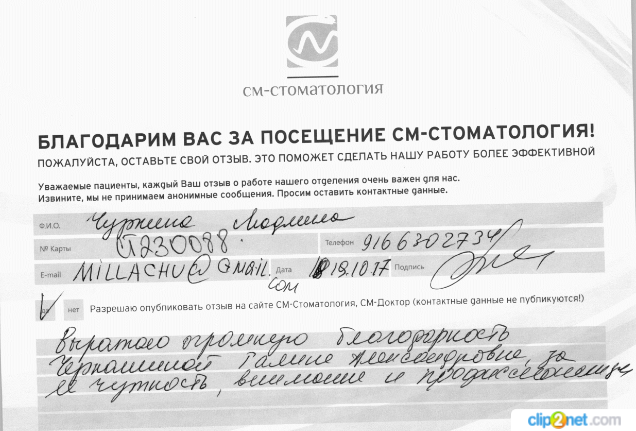 СМ-СТОМАТОЛОГИЯ
БЛАГОДАРИМ ВАС ЗА ПОСЕЩЕНИЕ СМ-СТОМАТОЛОГИЯ!
ПОЖАЛУЙСТА, ОСТАВЬТЕ СВОЙ ОТЗЫВ. ЭТО ПОМОЖЕТ СДЕЛАТЬ НАШУ РАБОТУ БОЛЕЕ ЭФФЕКТИВНОЙ
Уважаемые пациенты, каждый Ваш отзыв о работе нашего отделения очень важен для нас.
Извините, мы не принимаем анонимные сообщения. Просим оставить контактные данные.
Ф.И.О. Людмила
№ Карты Телефон 9166302734
E-mail MILLACHU@GMAIL.COM Дата 19.10.17 Подпись
да нет Разрешаю опубликовать отзыв на сайте СМ-Стоматология, СМ-Доктор (контактные данные не публикуются!)
Выражаю огромную благодарность
Галине Александровне за
её чуткость, внимание и профессионализм
clip2net.com